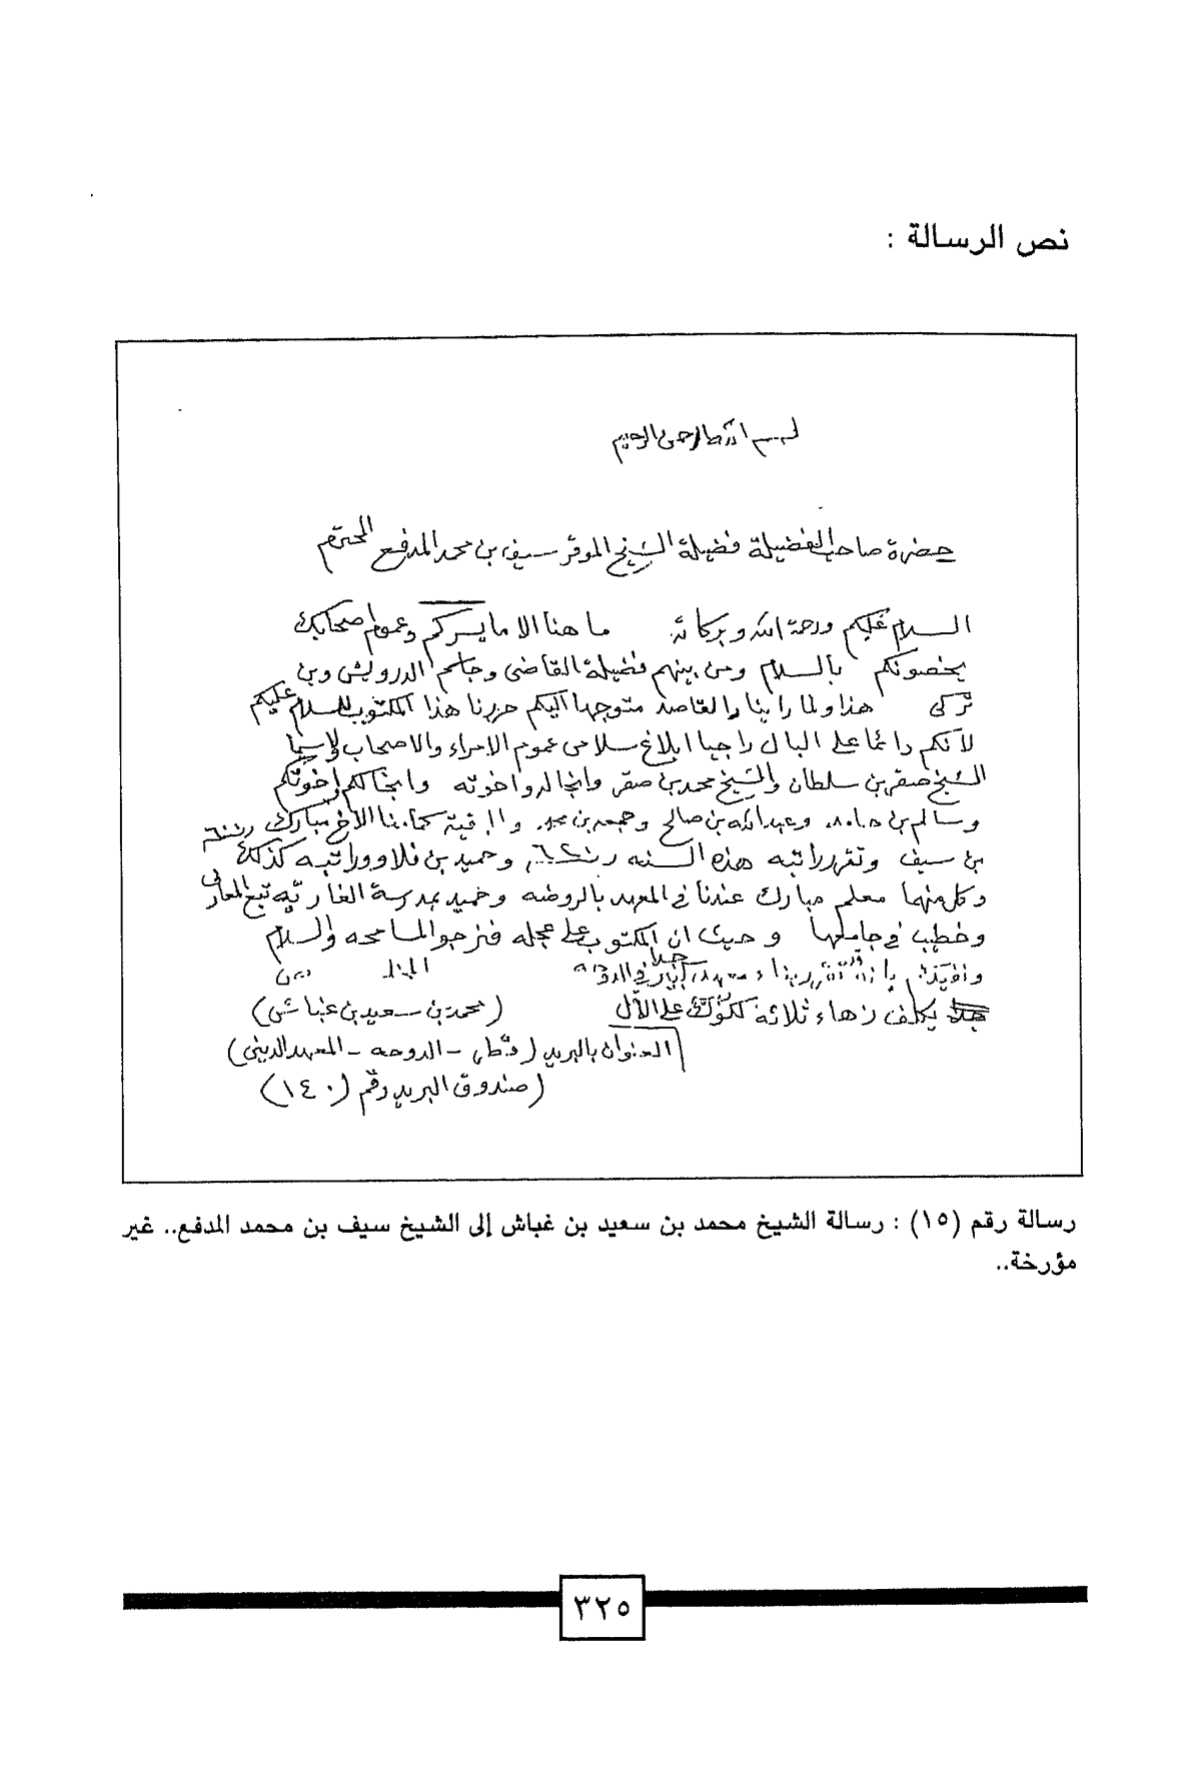 نص الرسالة :
بسم الله الرحمن الرحيم
حضرة صاحب الفضيلة فضيلة الشيخ الموقر سيف بن محمد المدفع المحترم
السلام عليكم ورحمة الله وبركاته ما هنا الا ما يسركم وعموم اصحابك
يخصونكم بالسلام ومن بينهم فضيلة القاضى وجاسم الدرويش وبن
تركى هذا ولما راينا القاصد متوجها اليكم حررنا هذا المكتوب للسلام عليكم
لأنكم دائما على البال راجيا ابلاغ سلامى عموم الامراء والاصحاب لاسيما
الشيخ صقر بن سلطان والشيخ محمد بن صقر وانجاله واخوته وانجالكم واخوتكم
وسالم بن وعبدالله بن صالح وجمعه بن كما الأخ مبارك
بن سيف وتقرر راتبه هذه السنه وحميد بن فلاو وراتبه كذلك
وكل منهما معلم مبارك عندنا في المعهد بالروضه وحميد بمدرسة الغاريه تبع المعارف
وخطيب في جامعها وحيث ان المكتوب على عجله فنرجو المسامحه والسلام
بناء معهد في
يكلف زهاء ثلاثة على الأقل (محمد بن سعيد بن غباش)
العنوان بالبريد (قطر - الدوحه - المعهد الدينى)
(صندوق البريد رقم (١٤٠)
رسالة رقم (١٥) : رسالة الشيخ محمد بن سعيد بن غباش إلى الشيخ سيف بن محمد المدفع.. غير
مؤرخة..
٣٢٥